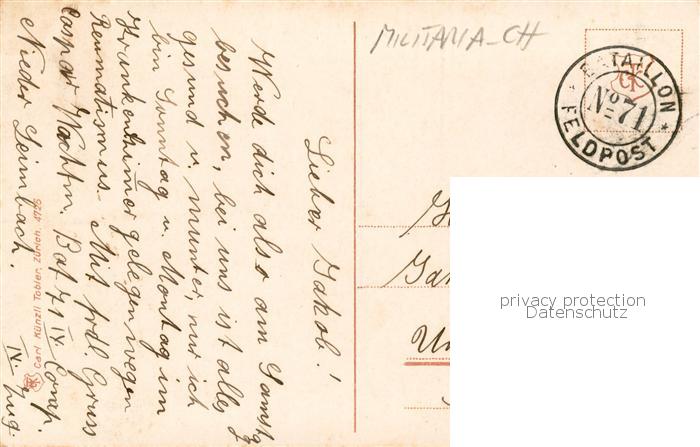 MILITARIA-CH
BATAILLON
No. 71
FELDPOST
Lieber Jakob!
Werde dich also am Samstg
besuchen, bei uns ist alles
gesund u. munter, nur ich
bin Sonntag u. Montag im
Krankenzimmer gelegen wegen
Reumatismus. Mit frdl. Gruss
Caspar Wachtm. Bat 71 IV. Comp.
Nieder Leimbach. IV. Zug.
Carl Künzli Tobler, Zürich. 4725
privacy protection
Datenschutz